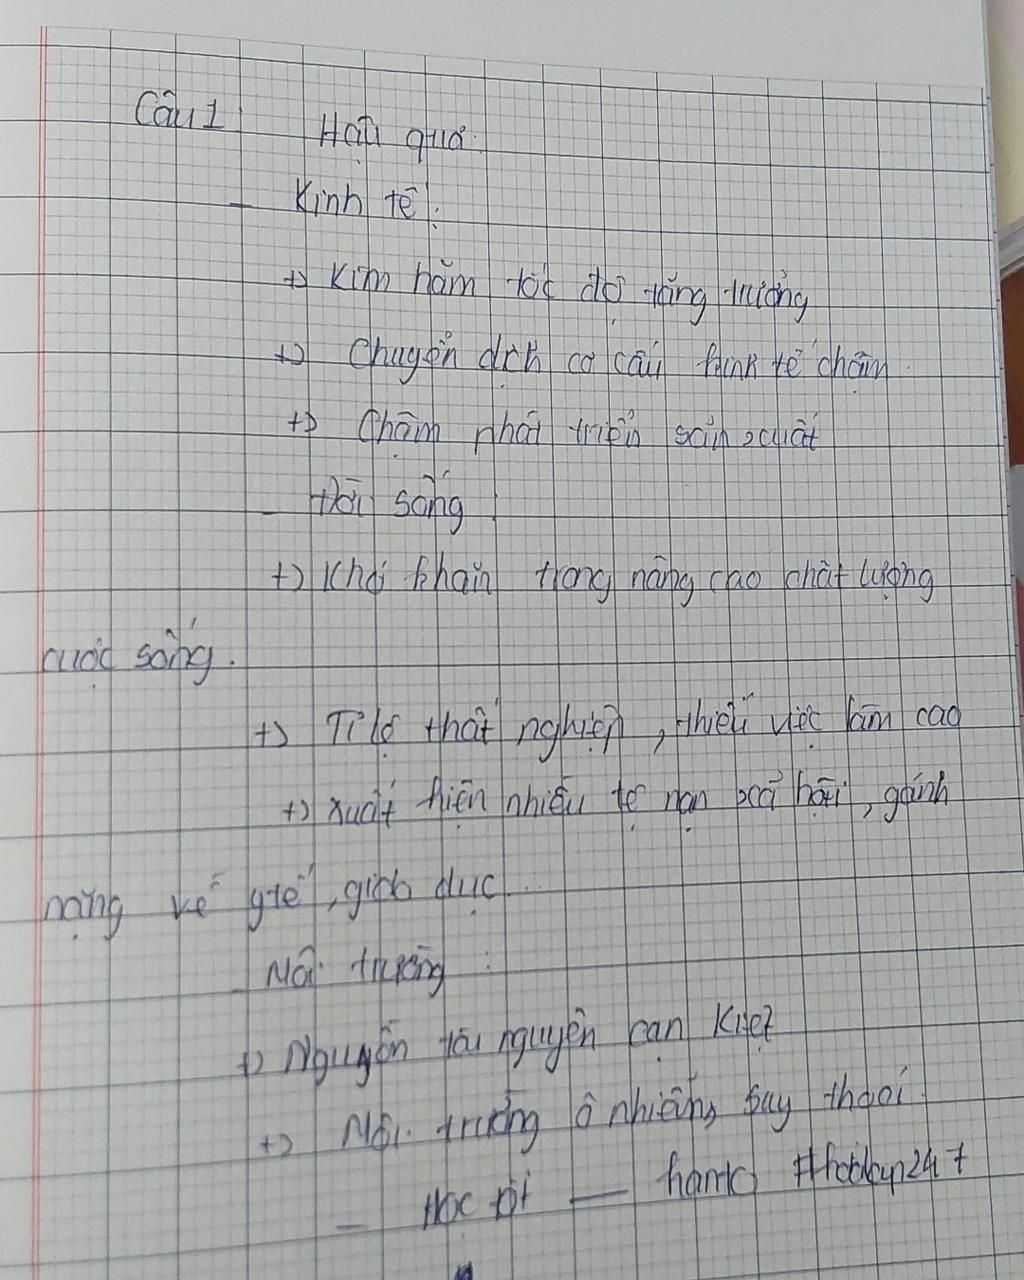 Câu 1 Hậu quả:
- Kinh tế:
+) Kìm hãm tốc độ tăng trưởng
+) Chuyển dịch cơ cấu kinh tế chậm.
+) Chậm phát triển sản xuất
- Đời sống
+) Khó khăn trong nâng cao chất lượng
cuộc sống.
+) Tỉ lệ thất nghiệp, thiếu việc làm cao
+) Xuất hiện nhiều tệ nạn xã hội, gánh
nặng về y tế, giáo dục.
- Môi trường:
+) Nguồn tài nguyên cạn kiệt
+) Môi trường ô nhiễm, suy thoái.
- Học